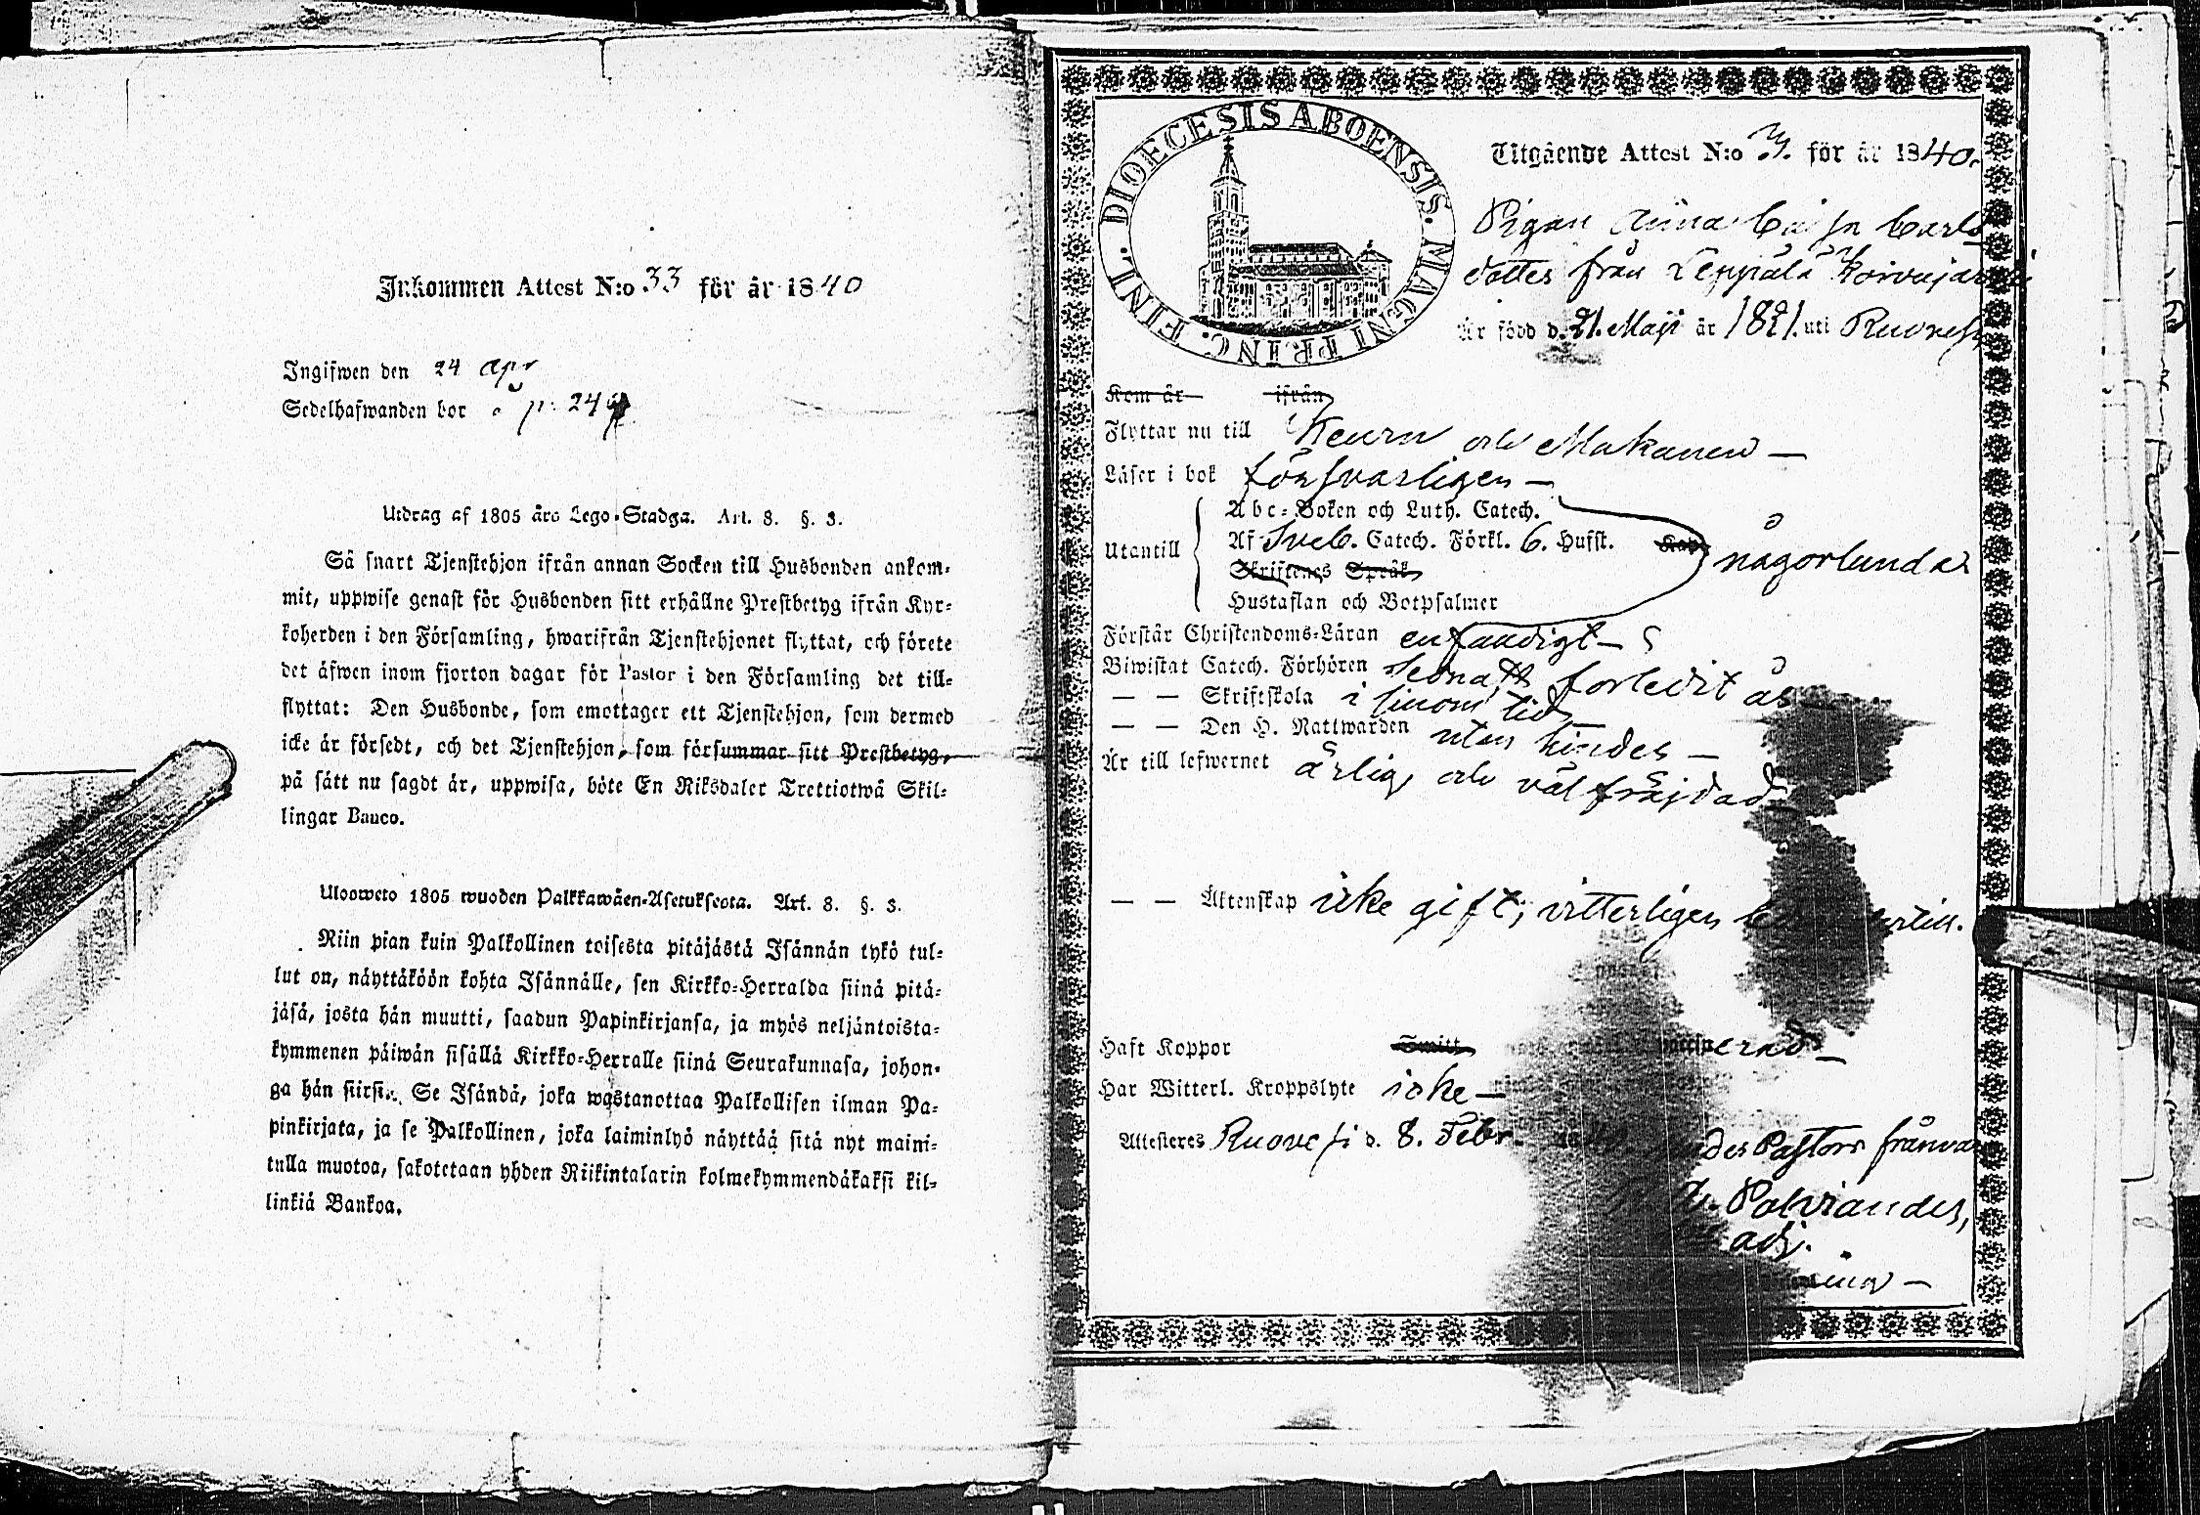 Inkommen Attest N:o 33 för år 1840
Ingifwen den 24 Apr
Sedelhafwanden bor p. 249
Utdrag af 1805 års Lego-Stadga. Art. 8. §. 3.
Så snart Tjenstehjon ifrån annan Socken till Husbonden ankom-
mit, uppwise genast för Husbonden sitt erhållne Prestbetyg ifrån Kyr-
koherden i den Församling, hwarifrån Tjenstehjonet flyttat, och förete
det äfwen inom fjorton dagar för Pastor i den Församling det till-
flyttat: Den Husbonde, som emottager ett Tjenstehjon, som dermed
icke är försedt, och det Tjenstehjon, som försummar sitt Prestbetyg,
på sätt nu sagdt är, uppwisa, böte En Riksdaler Trettiotwå Skil-
lingar Banco.
Ulosweto 1805 wuoden Palkkawäen-Asetuksesta. Art. 8. §. 3.
Niin pian kuin Palkollinen toisesta pitäjästä Isännän tykö tul-
lut on, näyttäköön kohta Isännälle, sen Kirkko-Herralda siinä pitä-
jäsä, josta hän muutti, saadun Papinkirjansa, ja myös neljäntoista-
kymmenen päiwän sisällä Kirkko-Herralle siinä Seurakunnasa, johon-
ga hän siirsi. Se Isändä, joka wastanottaa Palkollisen ilman Pa-
pinkirjata, ja se Palkollinen, joka laiminlyö näyttää sitä nyt maini-
tulla muotoa, sakotetaan yhden Riikintalarin kolmekymmendäkaksi kil-
linkiä Bankoa.
DIOECESIS ABOENSIS. MAGNI PRINC. FINL.
Utgående Attest N:o 3. för år 1840.
Pigan Anna Caisa Carls
dotter från Leppälä Koivujärvi
Är född d. 21. Maji år 1821. uti Ruovesi
Kom år ifrån
Flyttar nu till Keuru och Makanen —
Läser i bok försvarligen —
Abc-Boken och Luth. Catech.
Utantill Af Sveb. Catech. Förkl. 6. Hufst. Kap. någorlunda
Skriftenes Språk
Hustaflan och Botpsalmer
Förstår Christendoms-Läran enfaldigt —
Biwistat Catech. Förhören sednast förledit år
— — Skriftskola i sinom tid
— — Den H. Nattwarden utan hinder —
Är till lefwernet ärlig och väl fräjdad
— — Äktenskap icke gift; vitterligen
Haft Koppor Smitt vaccinerad —
Har Witterl. Kroppslyte icke —
Attesteras Ruovesi d. 8. Febr. Pastors frånva
Polviander,
adj.